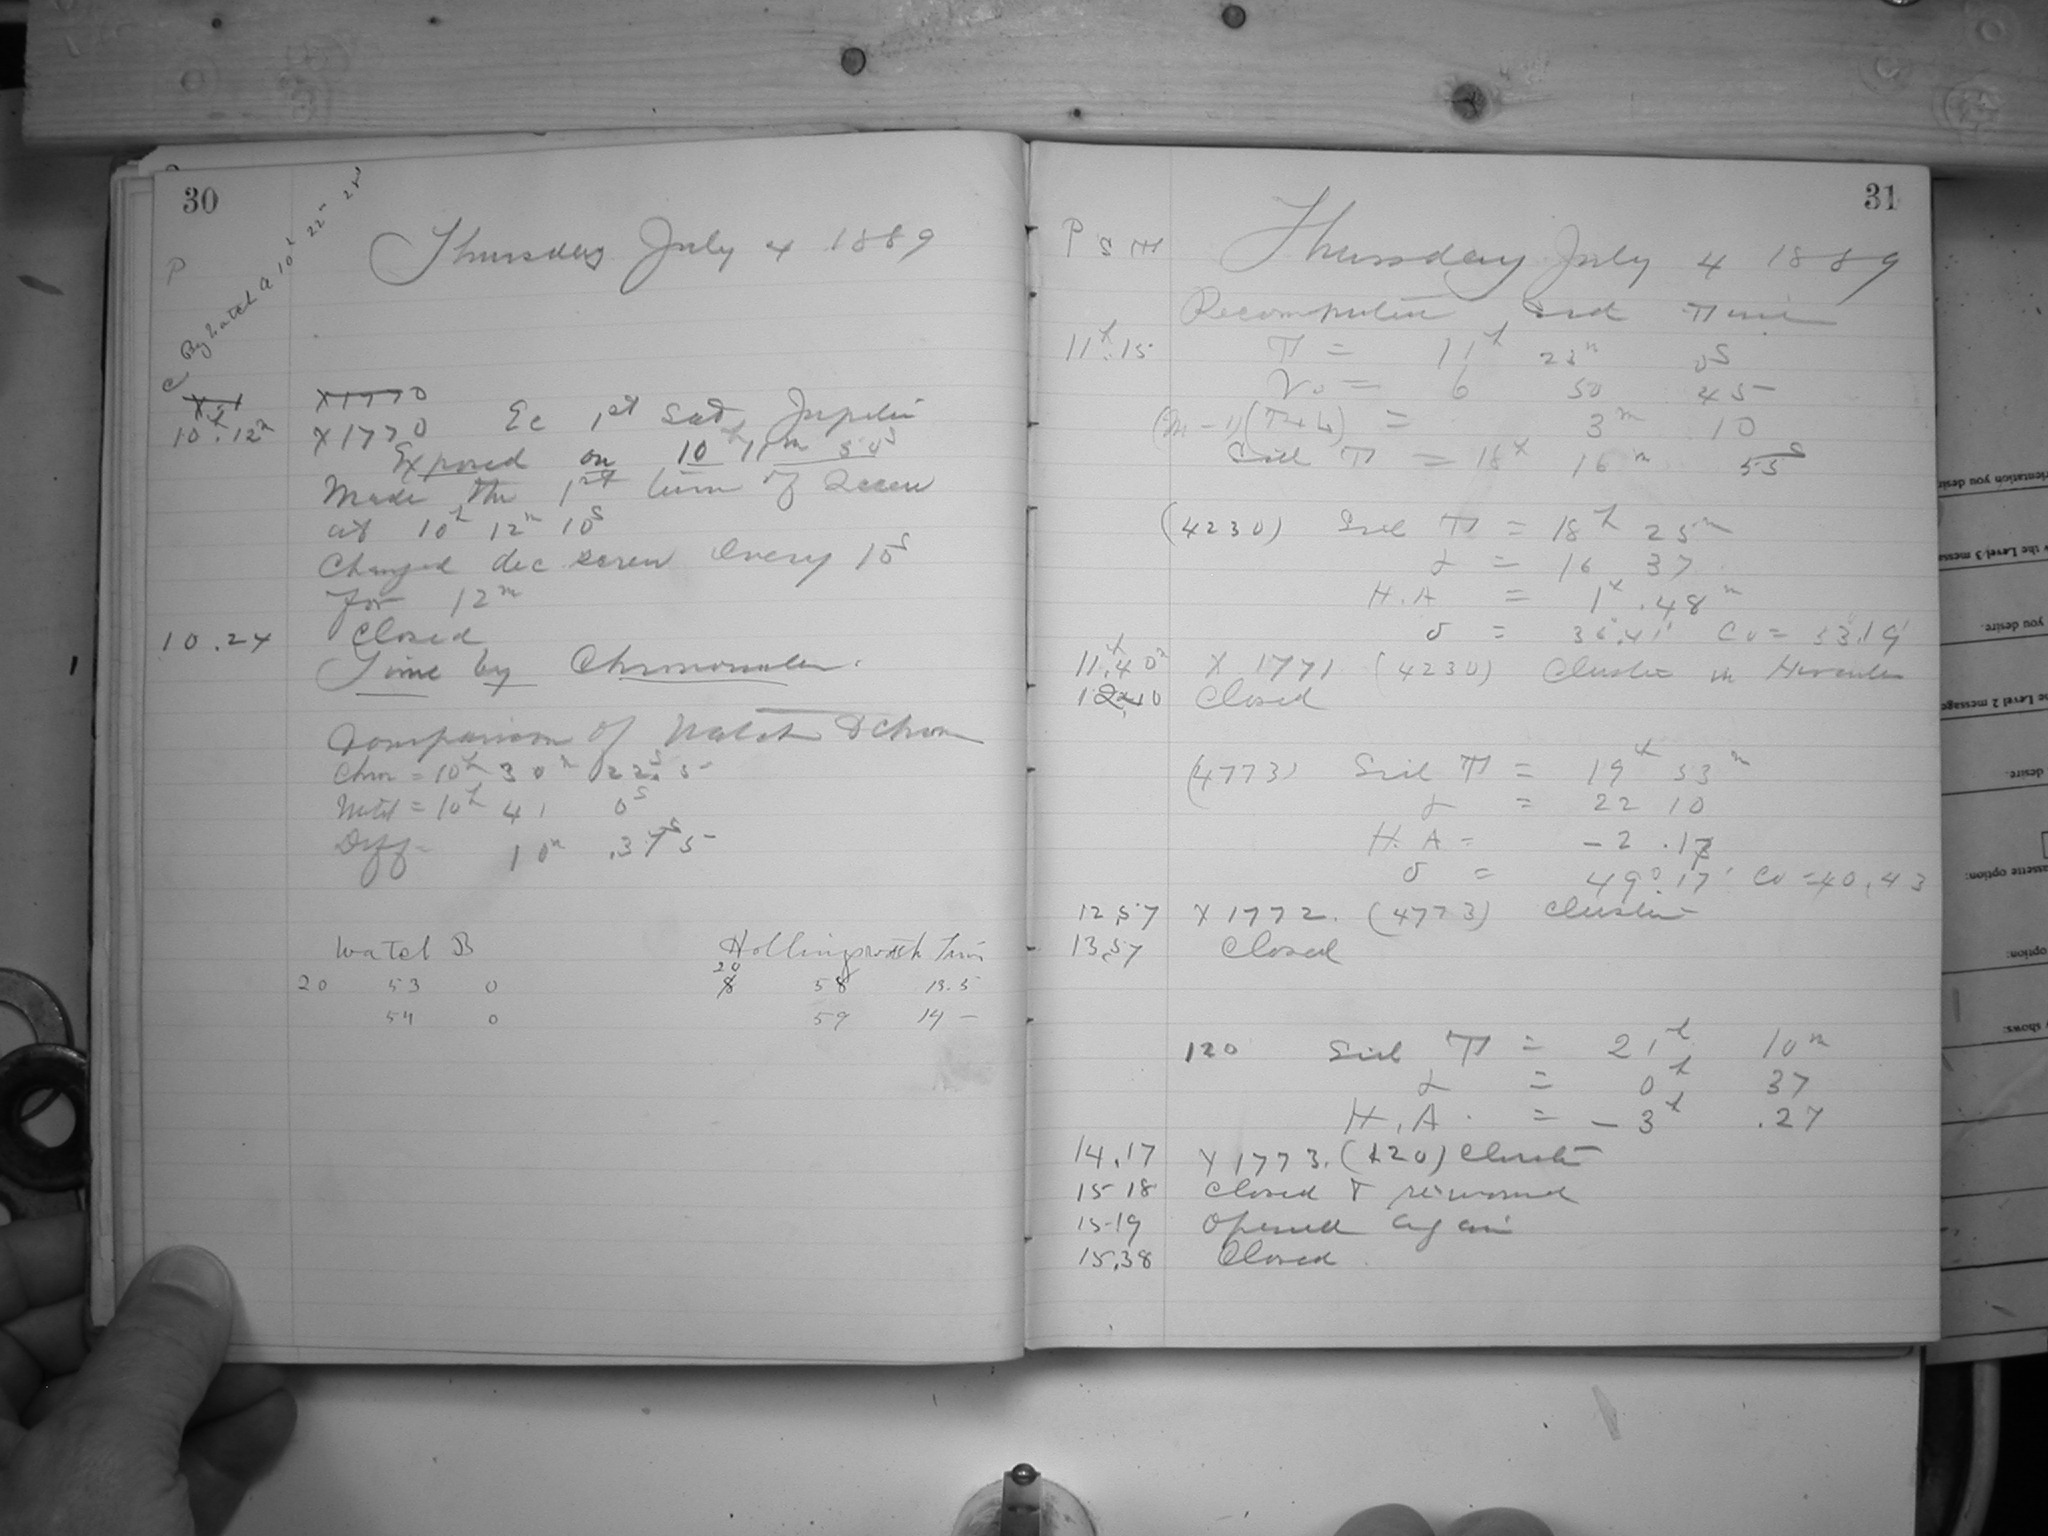 30
Thursday July 4 1889
P
By Watch A 10h 22m 28s
X1770
10h.12m X1770 Ec 1st Sat, Jupiter
Exposed on 10h 11m 50s
Made the 1st turn of Screw
at 10h 12m 10s
Changed dec screw every 10s
for 12m
10.24 Closed
Time by Chronometer.
Comparison of Watch & Chron
Chro = 10h 30m 22s.5
Watch = 10h 41 0s
Diff = 10m .37s5
Watch B Hollingsworth Time
20 53 0 20 58 13.5
54 0 59 14 -
31
P S T Thursday July 4 1889
Sid Time
11h.15 T = 11h 23m 0s
V0 = 6 50 45
= 3m 10
Sid T = 18h 16m 55s
(4230) Sid T = 18h 25m
α = 16 37
H.A = 1h.48m
δ = 36.41' Co = 53.19'
11h.40m X 1771 (4230) Cluster in Hercules
Closed
(4773) Sid T = 19h 53m
α = 22 10
H.A = -2.17
δ = 49°.17' Co = 40.43
12.57 X 1772. (4773) Cluster
13.57 Closed
120 Sid T = 21h 10m
α = 0h 37
H.A. = -3h .27
14.17 X 1773. (120) Cluster
15 18 Closed & rewound
15.19 Opened again
15.38 Closed